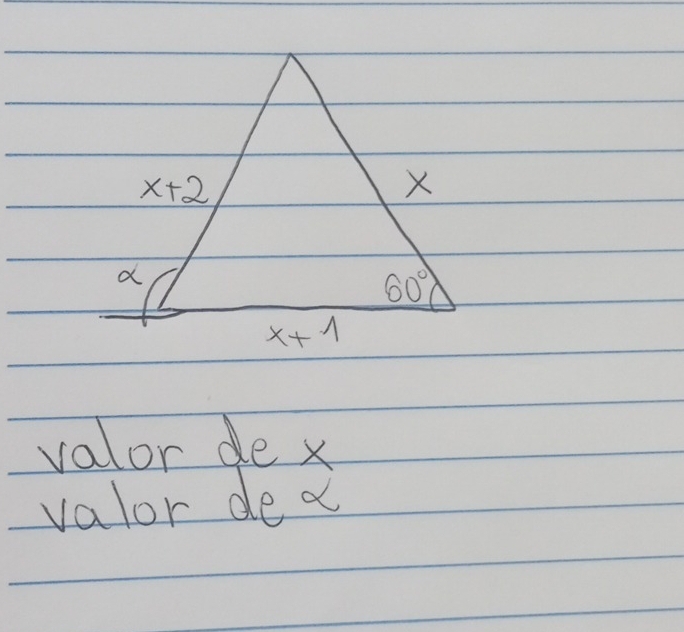 x+2
x
α
60°
x+1
valor de x
valor de α